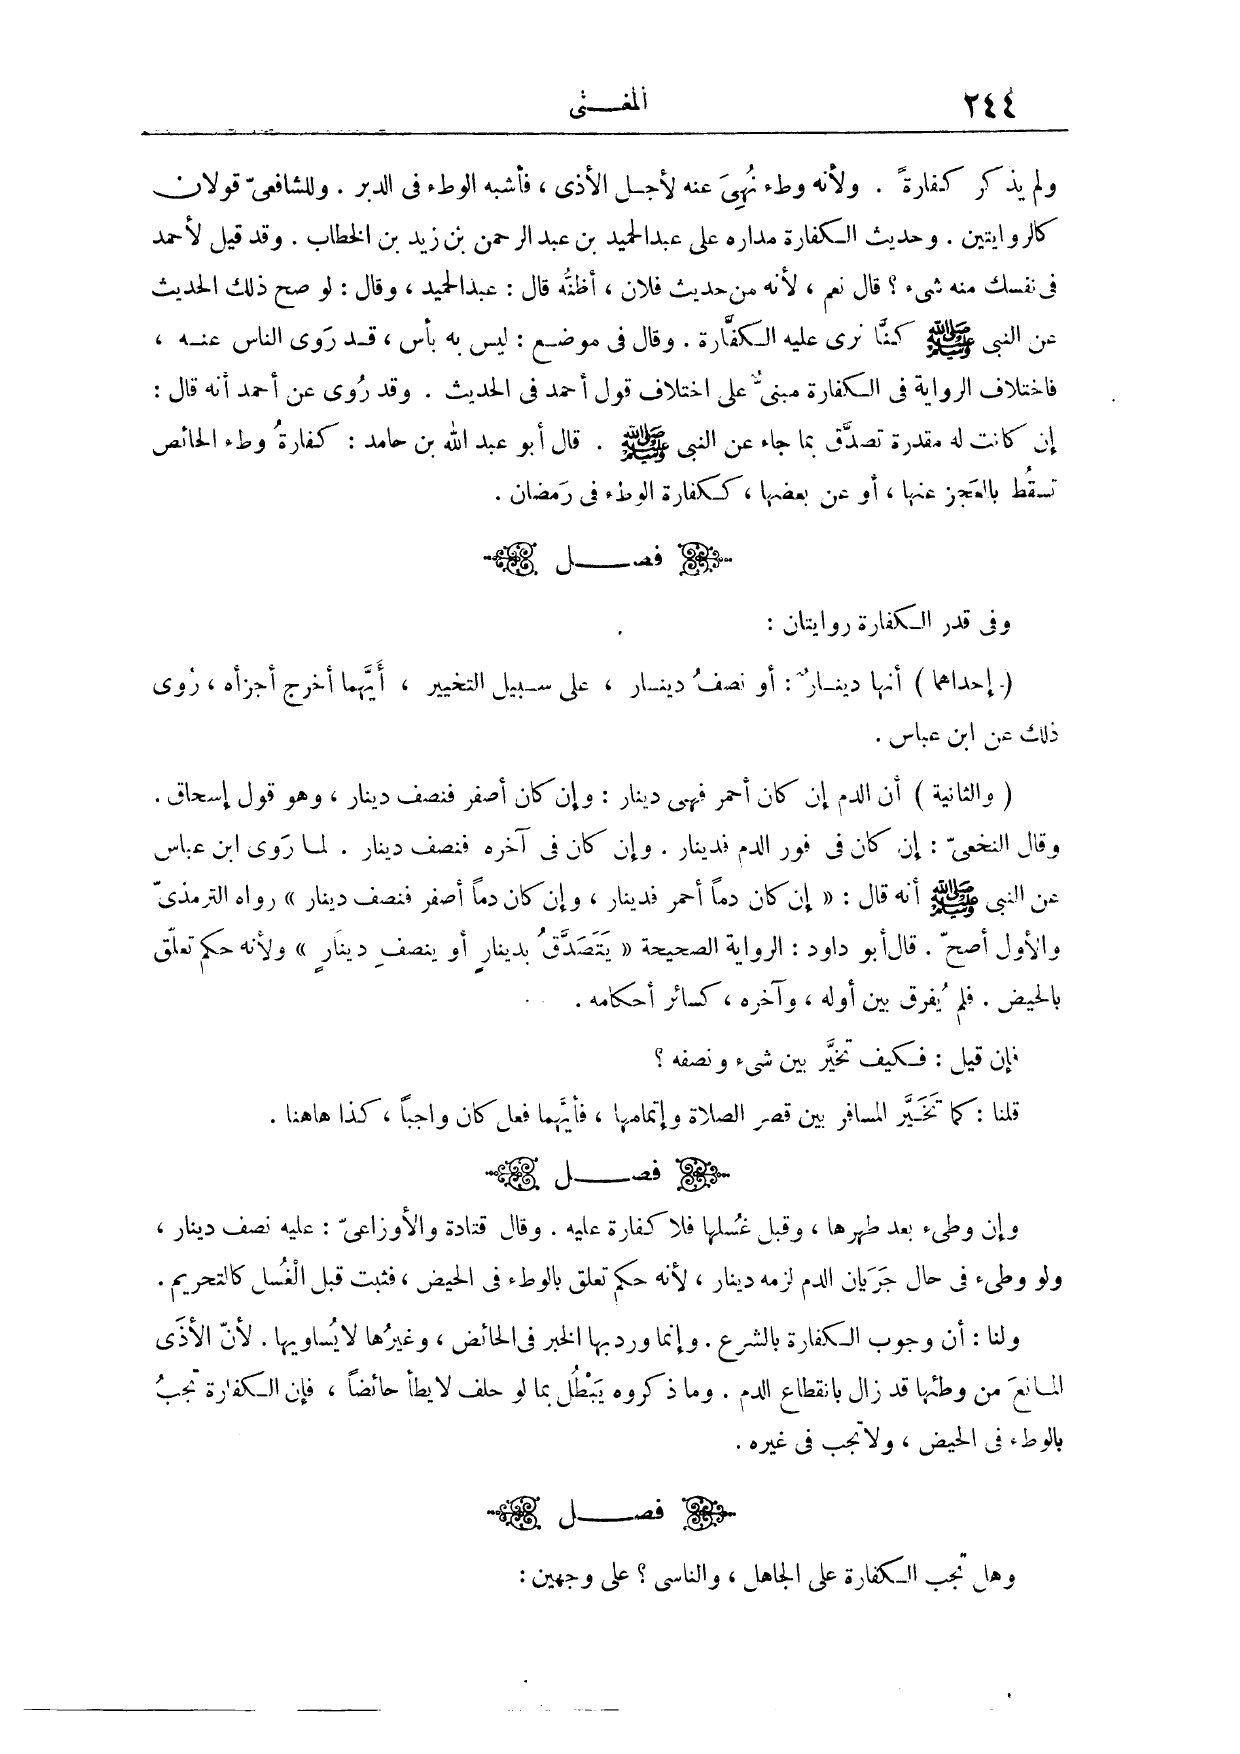 ٢٤٤
المغـــنى
ولم يذكر كفارةً . ولأنه وطء نُهِىَ عنه لأجل الأذى ، فأشبه الوطء فى الدبر . وللشافعىّ قولان
كالروايتين . وحديث الكفارة مداره على عبدالحميد بن عبد الرحمن بن زيد بن الخطاب . وقد قيل لأحمد
فى نفسك منه شىء ؟ قال نعم ، لأنه من حديث فلان ، أظنُّه قال : عبدالحميد ، وقال : لو صح ذلك الحديث
عن النبى ﷺ كنَّا نرى عليه الكفَّارة . وقال فى موضع : ليس به بأس ، قد رَوى الناس عنه ،
فاختلاف الرواية فى الكفارة مبنىٌّ على اختلاف قول أحمد فى الحديث . وقد رُوى عن أحمد أنه قال :
إن كانت له مقدرة تصدَّق بما جاء عن النبى ﷺ . قال أبو عبد الله بن حامد : كفارةُ وطء الحائض
تسقُط بالعَجز عنها ، أو عن بعضها ، ككفارة الوطء فى رَمضان .
فصـــل
وفى قدر الكفارة روايتان :
( إحداهما ) أنها دينارٌ : أو نصفُ دينار ، على سبيل التخيير ، أَيَّهما أخرج أجزأه ، رُوى
ذلك عن ابن عباس .
( والثانية ) أن الدم إن كان أحمر فهى دينار : وإن كان أصفر فنصف دينار ، وهو قول إسحاق .
وقال النخعىّ : إن كان فى فور الدم فدينار . وإن كان فى آخره فنصف دينار . لما رَوى ابن عباس
عن النبى ﷺ أنه قال : « إن كان دماً أحمر فدينار ، وإن كان دماً أصفر فنصف دينار » رواه الترمذىّ
والأول أصحّ . قال أبو داود : الرواية الصحيحة « يَتَصَدَّقُ بدينارٍ أو بنصفِ دينارٍ » ولأنه حكم تعلّق
بالحيض . فلم يُفرق بين أوله ، وآخره ، كسائر أحكامه .
فإن قيل : فكيف تخيَّر بين شىء ونصفه ؟
قلنا : كما تَخَيَّر المسافر بين قصر الصلاة وإتمامها ، فأيهما فعل كان واجباً ، كذا هاهنا .
فصـــل
وإن وطىء بعد طهرها ، وقبل غُسلها فلا كفارة عليه . وقال قتادة والأوزاعىّ : عليه نصف دينار ،
ولو وطىء فى حال جَرَيان الدم لزمه دينار ، لأنه حكم تعلق بالوطء فى الحيض ، فثبت قبل الْغُسل كالتحريم .
ولنا : أن وجوب الكفارة بالشرع . وإنما ورد بها الخبر فى الحائض ، وغيرُها لا يُساويها . لأنّ الأذَى
المانعَ من وطئها قد زال بانقطاع الدم . وما ذكروه يَبْطُل بما لو حلف لا يطأ حائضاً ، فإن الكفارة تجبُ
بالوطء فى الحيض ، ولا تجب فى غيره .
فصـــل
وهل تجب الكفارة على الجاهل ، والناسى ؟ على وجهين :